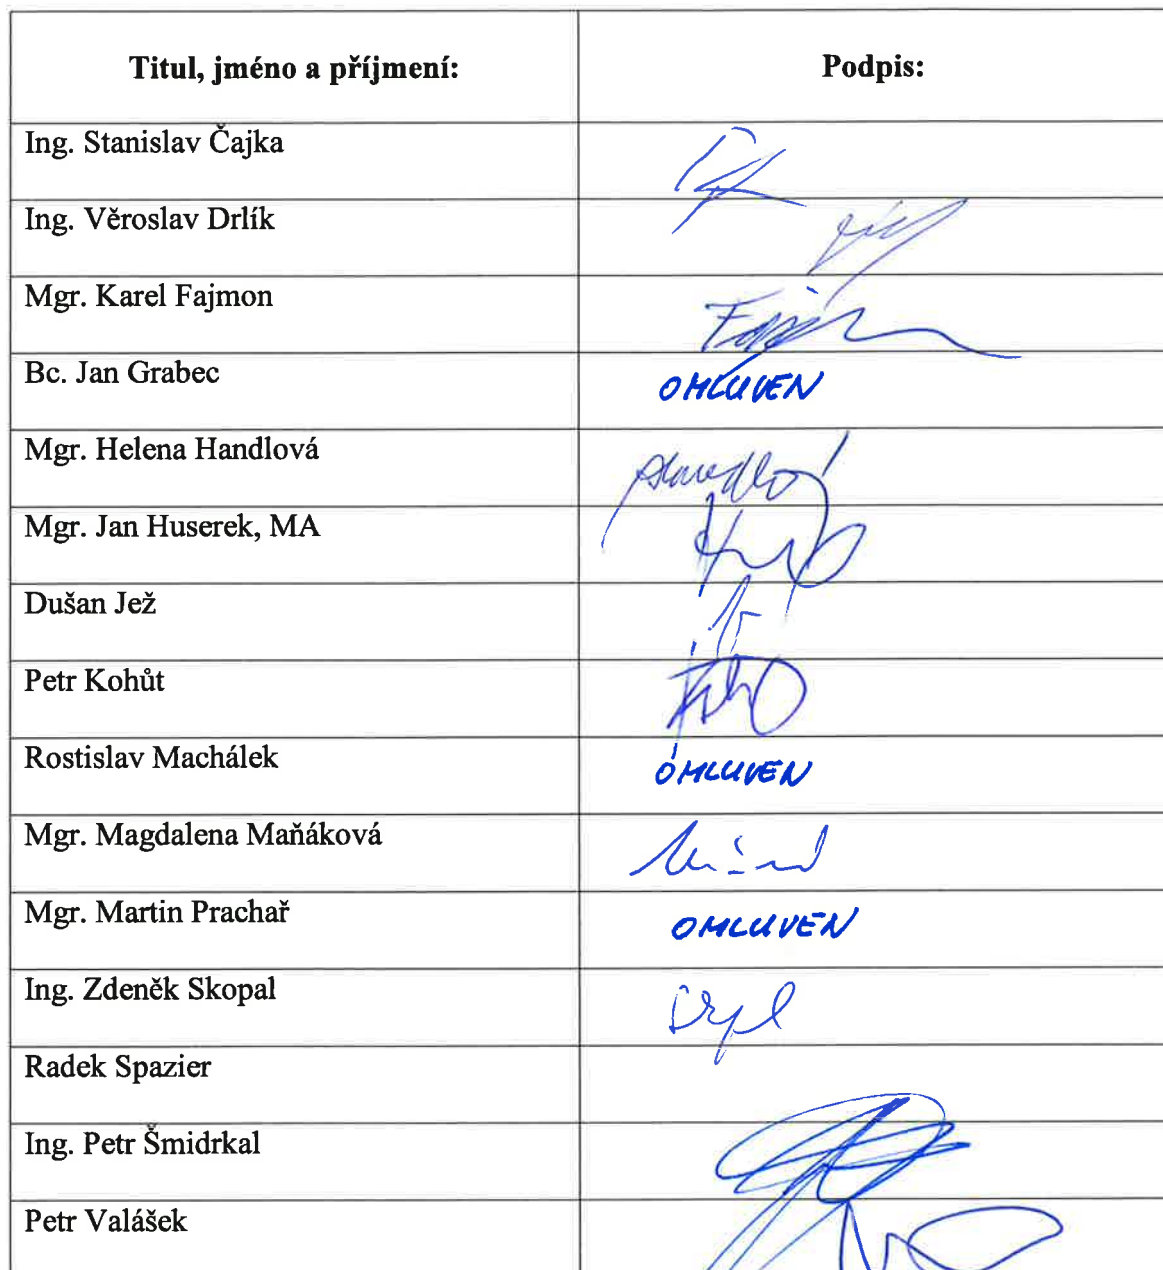 Titul, jméno a příjmení: Podpis:
Ing. Stanislav Čajka
Ing. Věroslav Drlík
Mgr. Karel Fajmon
Bc. Jan Grabec OMLUVEN
Mgr. Helena Handlová
Mgr. Jan Huserek, MA
Dušan Jež
Petr Kohůt
Rostislav Machálek OMLUVEN
Mgr. Magdalena Maňáková
Mgr. Martin Prachař OMLUVEN
Ing. Zdeněk Skopal
Radek Spazier
Ing. Petr Šmidrkal
Petr Valášek